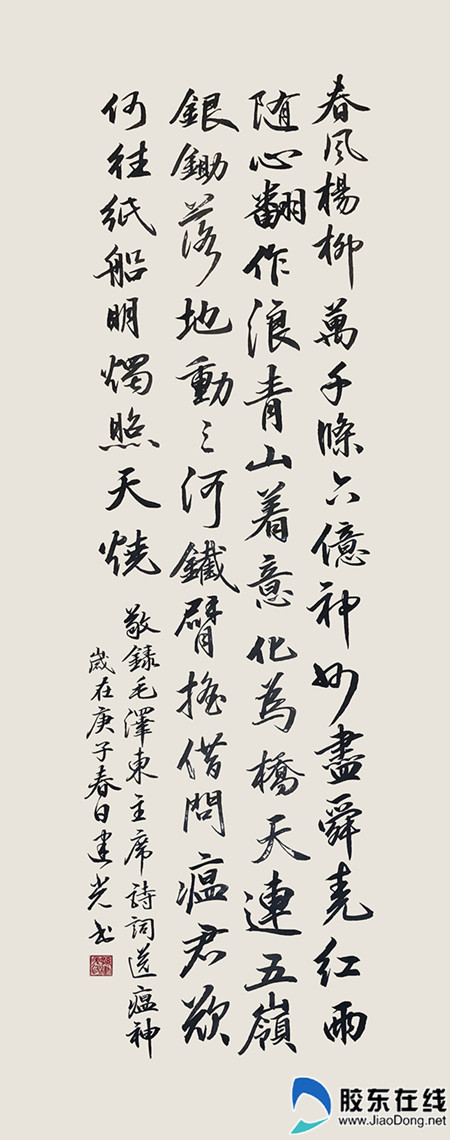 春风楊柳萬千條六億神州盡舜堯紅雨
随心翻作浪青山着意化為橋天連五嶺
銀鋤落地動三河鐵臂搖借問瘟君欲
何往紙船明燭照天燒
敬録毛澤東主席詩詞送瘟神
歲在庚子春日建光书
胶东在线
www.JiaoDong.net